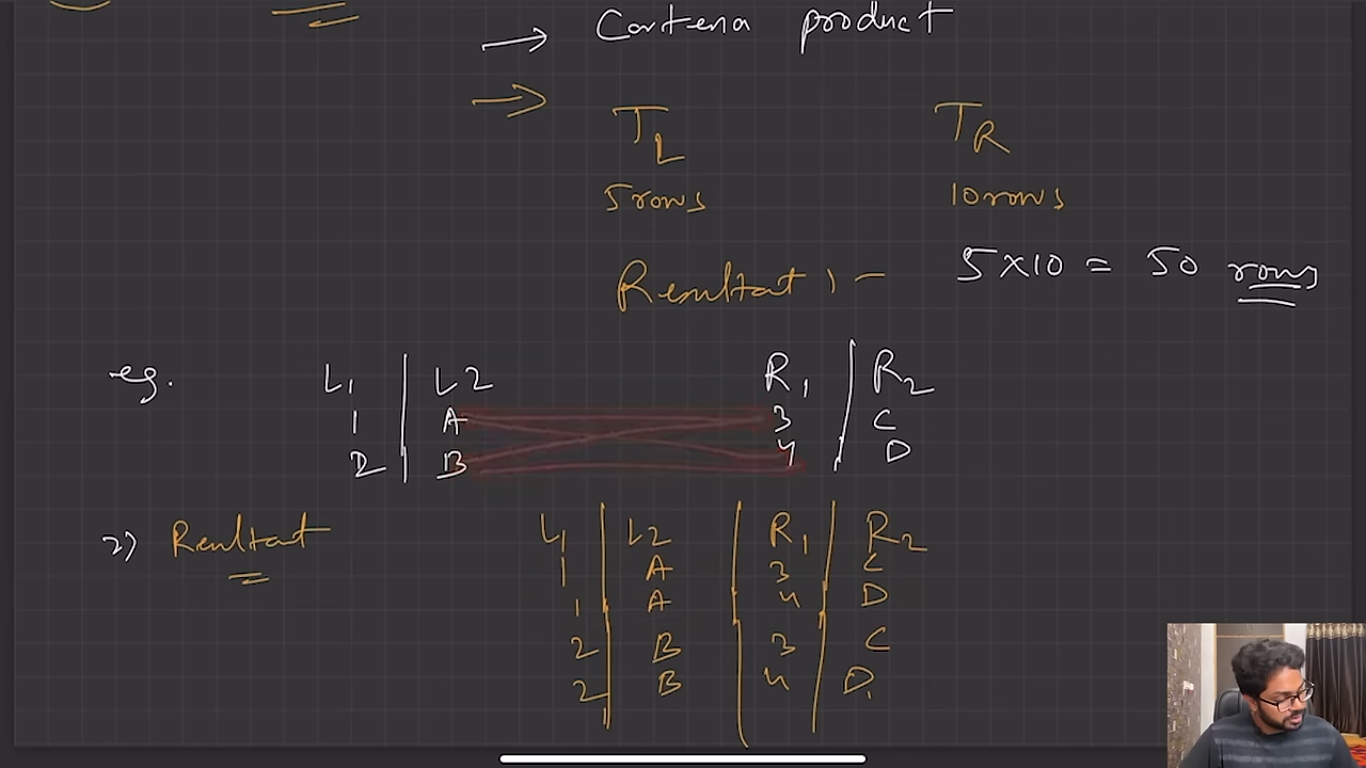 → Cartena product
→
T_L T_R
5 rows 10 rows
Resultat :- 5×10 = 50 rows
eg. L1 | L2 R1 | R2
1 | A 3 | C
2 | B 4 | D
2) Resultant L1 | L2 | R1 | R2
1 | A | 3 | C
1 | A | 4 | D
2 | B | 3 | C
2 | B | 4 | D